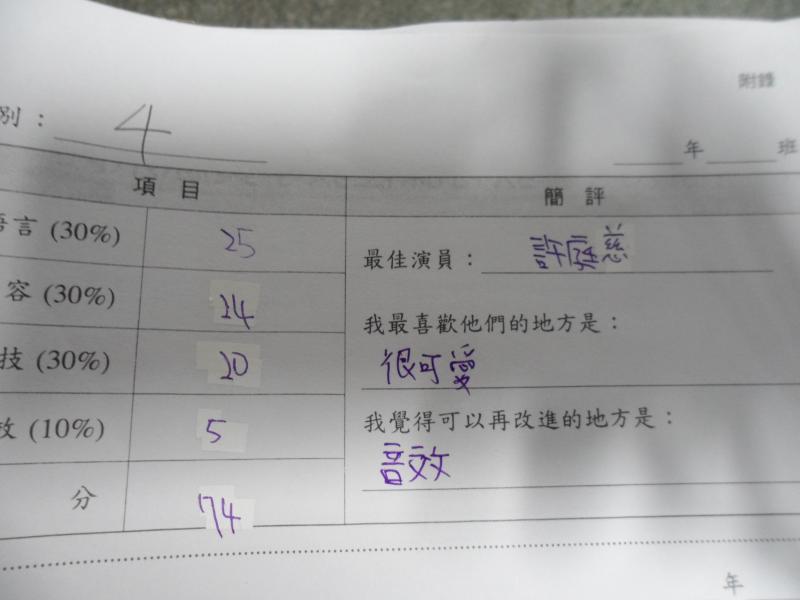 附錄
別： 4
年 班
項目 簡評
語言 (30%) 25
最佳演員： 許庭慈
容 (30%) 24
我最喜歡他們的地方是：
技 (30%) 20
很可愛
效 (10%) 5
我覺得可以再改進的地方是：
音效
分 74
年